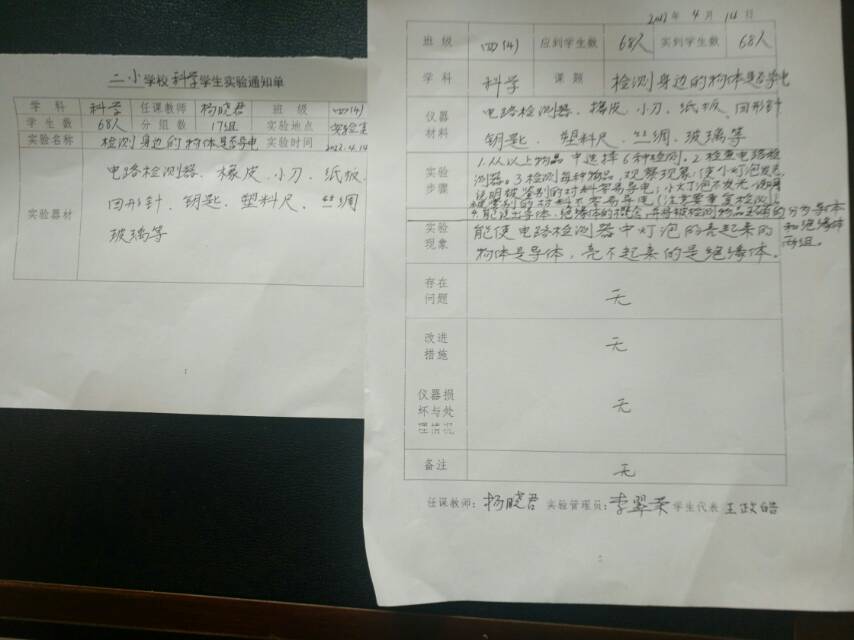 二小学校科学学生实验通知单
学科 科学 任课教师 杨晓君 班级 四(4)
学生数 68人 分组数 17组 实验地点 实验室
实验名称 检测身边的物体是否导电 实验时间 2022.4.14
实验器材
电路检测器、橡皮、小刀、纸板、
回形针、钥匙、塑料尺、丝绸
玻璃等
2022年4月14日
班级 四(4) 应到学生数 68人 实到学生数 68人
学科 科学 课题 检测身边的物体是否导电
仪器材料
电路检测器、橡皮、小刀、纸板、回形针
钥匙、塑料尺、丝绸、玻璃等
实验步骤
1.从以上物品中选择6种检测。2.检查电路检
测器。3.检测每种物品,观察现象:使小灯泡发亮,
说明被鉴别的材料容易导电;小灯泡不发光,说明
被鉴别的材料不容易导电(注意要重复检测)
4.能说出导体、绝缘体的概念,并将被检测物品正确的分为导体
和绝缘体
两组。
实验现象
能使电路检测器中灯泡的亮起来的
物体是导体,亮不起来的是绝缘体。
存在问题 无
改进措施 无
仪器损坏与处理情况 无
备注 无
任课教师:杨晓君 实验管理员:李翠荣 学生代表 王政皓